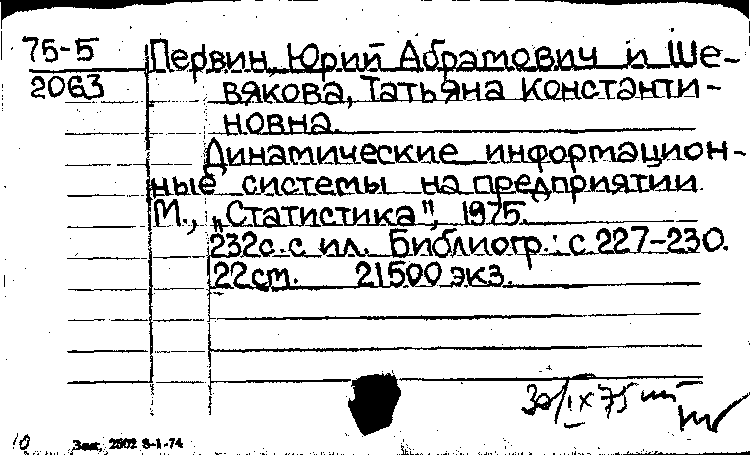 75-5 Первин, Юрий Абрамович и Ше-
2063 вякова, Татьяна Константи-
новна.
Динамические информацион-
ные системы на предприятии
М., „Статистика", 1975.
232с. с ил. Библиогр.: с. 227-230.
22 ст. 21500 экз.
30/IX 75
10 Зак. 2502 8-1-74